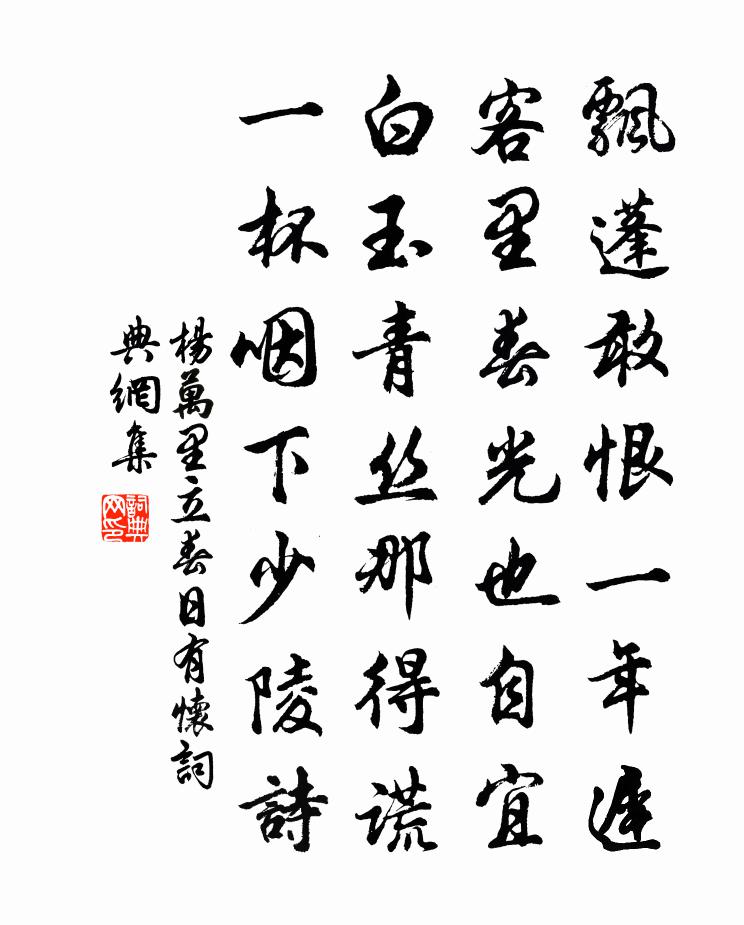 飄蓬敢恨一年遲
客里春光也自宜
白玉青丝那得謊
一杯咽下少陵詩
楊萬里立春日有懷詞
典網集
詞典
网印